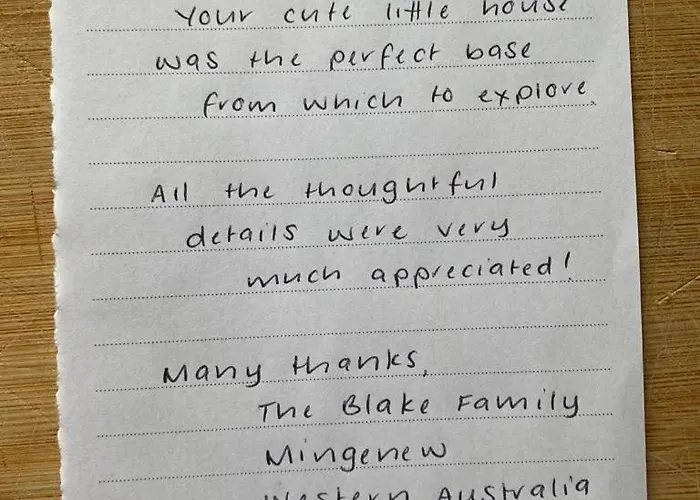 Your cute little house
was the perfect base
from which to explore.
All the thoughtful
details were very
much appreciated!
Many thanks,
The Blake Family
Mingenew
Western Australia